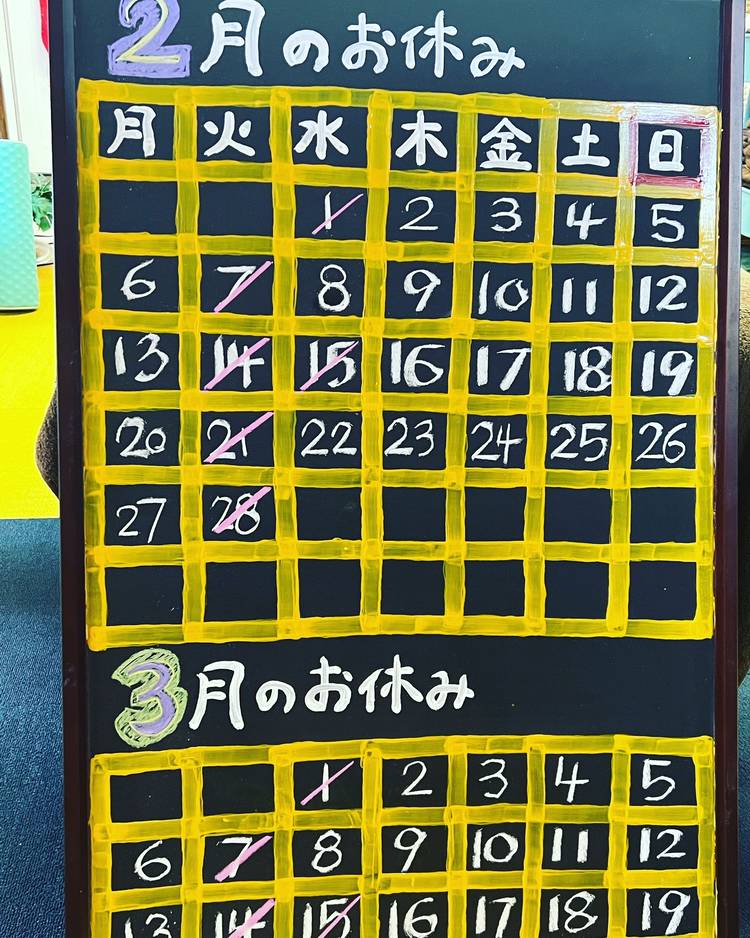 2月のお休み
月 火 水 木 金 土 日
1 2 3 4 5
6 7 8 9 10 11 12
13 14 15 16 17 18 19
20 21 22 23 24 25 26
27 28
3月のお休み
1 2 3 4 5
6 7 8 9 10 11 12
13 14 15 16 17 18 19